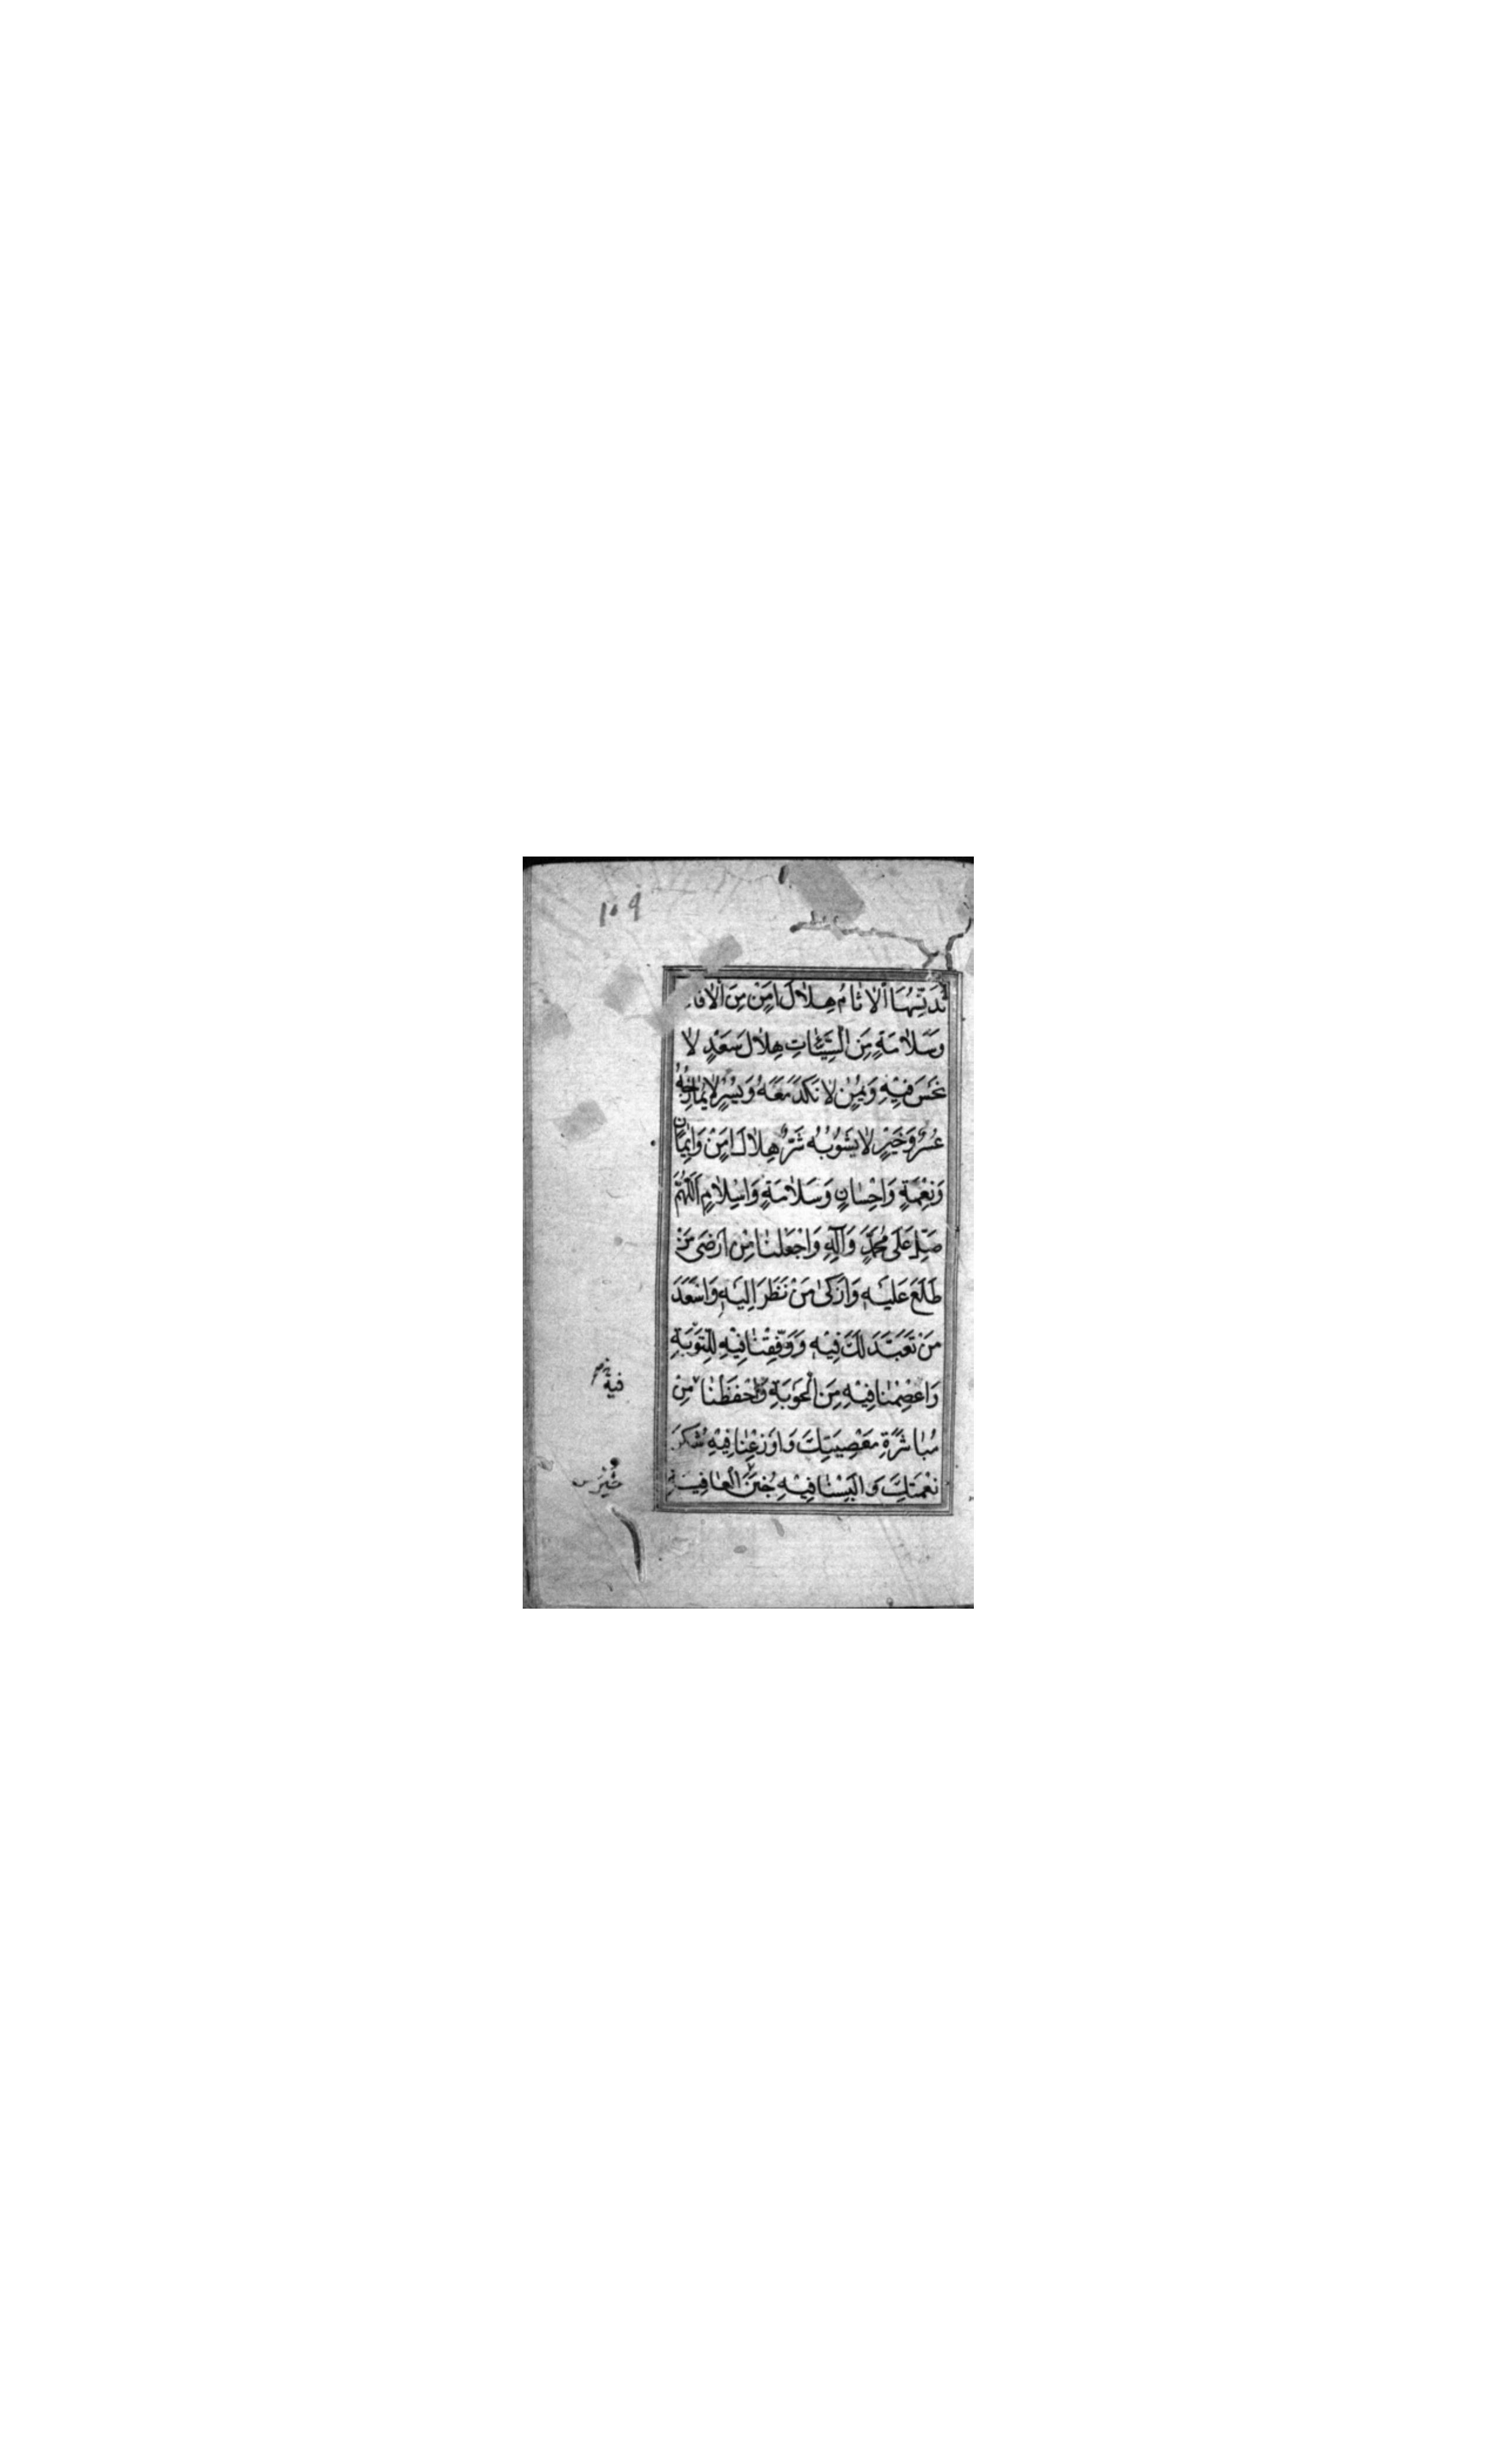 ۱۰۹
تُدَنِّسُهَا الْاٰثَامُ هِلَالَ اَمْنٍ مِنَ الْاٰفَاتِ
وَسَلَامَةٍ مِنَ السَّيِّئَاتِ هِلَالَ سَعْدٍ لَا
نَحْسَ فِيْهِ وَيُمْنٍ لَا نَكَدَ مَعَهُ وَيُسْرٍ لَا يُمَازِجُهُ
عُسْرٌ وَخَيْرٍ لَا يَشُوْبُهُ شَرٌّ هِلَالَ اَمْنٍ وَاِيْمَانٍ
وَنِعْمَةٍ وَاِحْسَانٍ وَسَلَامَةٍ وَاِسْلَامٍ اَللّٰهُمَّ
صَلِّ عَلٰى مُحَمَّدٍ وَاٰلِهِ وَاجْعَلْنَا مِنْ اَرْضٰى مَنْ
طَلَعَ عَلَيْهِ وَاَزْكٰى مَنْ نَظَرَ اِلَيْهِ وَاَسْعَدَ
مَنْ تَعَبَّدَ لَكَ فِيْهِ وَوَفِّقْنَا فِيْهِ لِلتَّوْبَةِ
وَاعْصِمْنَا فِيْهِ مِنَ الْحَوْبَةِ وَاحْفَظْنَا مِنْ
فيه
مُبَاشَرَةِ مَعْصِيَتِكَ وَاَوْزِعْنَا فِيْهِ شُكْرَ
نِعْمَتِكَ وَاَلْبِسْنَا فِيْهِ جُنَنَ الْعَافِيَةِ